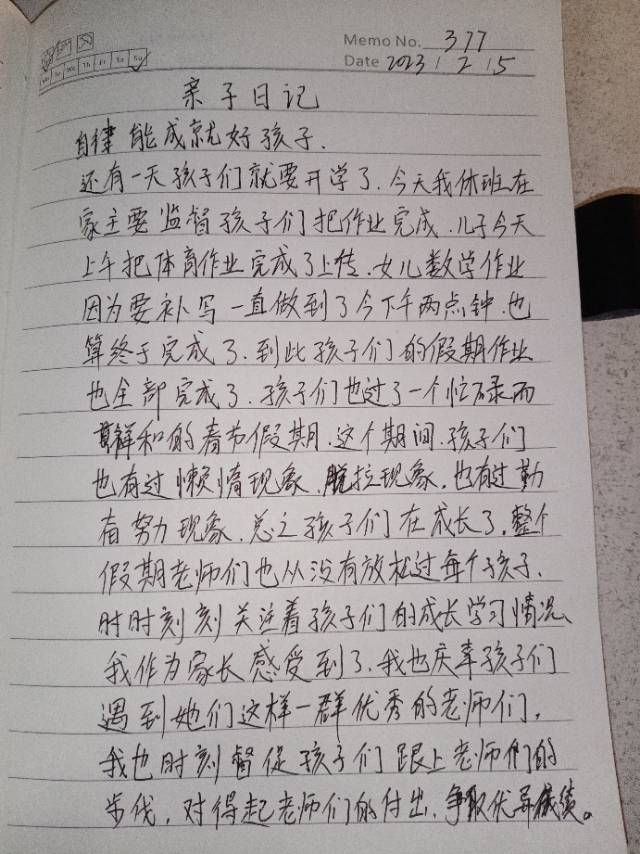 Memo No. 377
Mo Tu We Th Fr Sa Su
Date 2023 / 2 / 5
亲子日记
自律能成就好孩子.
还有一天孩子们就要开学了.今天我休班在
家主要监督孩子们把作业完成.儿子今天
上午把体育作业完成了上传.女儿数学作业
因为要补写一直做到了今下午两点钟.也
算终于完成了.到此孩子们的假期作业
也全部完成了.孩子们也过了一个忙碌而
祥和的春节假期.这个期间.孩子们
也有过懒惰现象.脱拉现象.也有过勤
奋努力现象.总之孩子们在成长了.整个
假期老师们也从没有放松过每个孩子.
时时刻刻关注着孩子们的成长学习情况、
我作为家长感受到了.我也庆幸孩子们
遇到她们这样一群优秀的老师们,
我也时刻督促孩子们跟上老师们的
步伐,对得起老师们的付出.争取优异成绩。